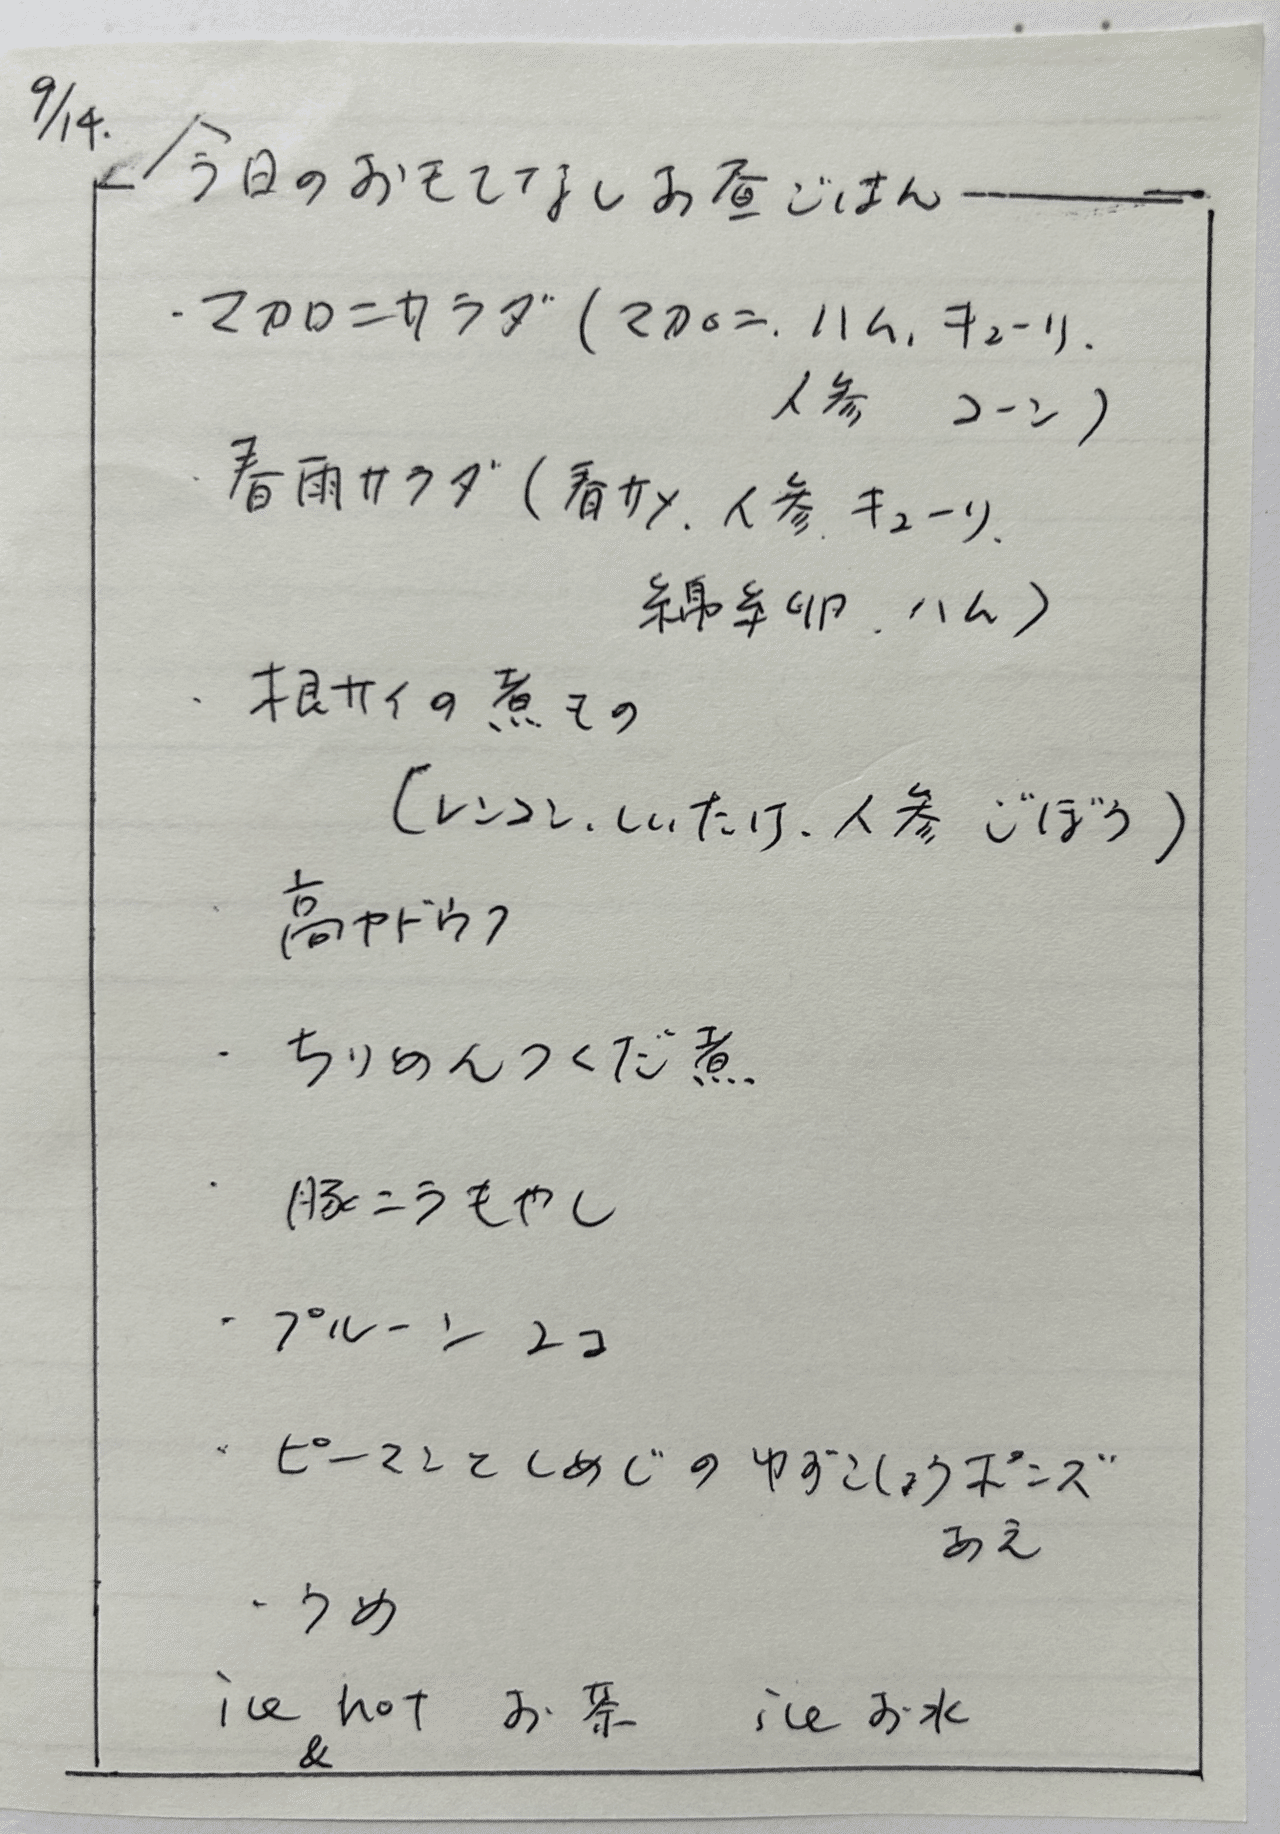 9/14.
今日のおもてなしお昼ごはん
・マカロニサラダ(マカロニ、ハム、キューリ、
人参 コーン)
・春雨サラダ(春サメ、人参、キューリ、
綿糸卵、ハム)
・根サイの煮もの
(レンコン、しいたけ、人参 ごぼう)
・高ヤドウフ
・ちりめんつくだ煮
・豚ニラもやし
・プルーン 2コ
・ピーマンとしめじのゆずこしょうポンズ
あえ
・うめ
ice & hot お茶 ice お水